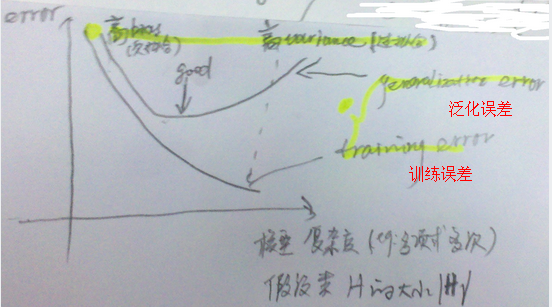 error
高bias
(欠拟合)
高variance (过拟合)
good
generalization error
泛化误差
training error
训练误差
模型 复杂度 (eg:多项式多次)
假设类 H的大小 |H|